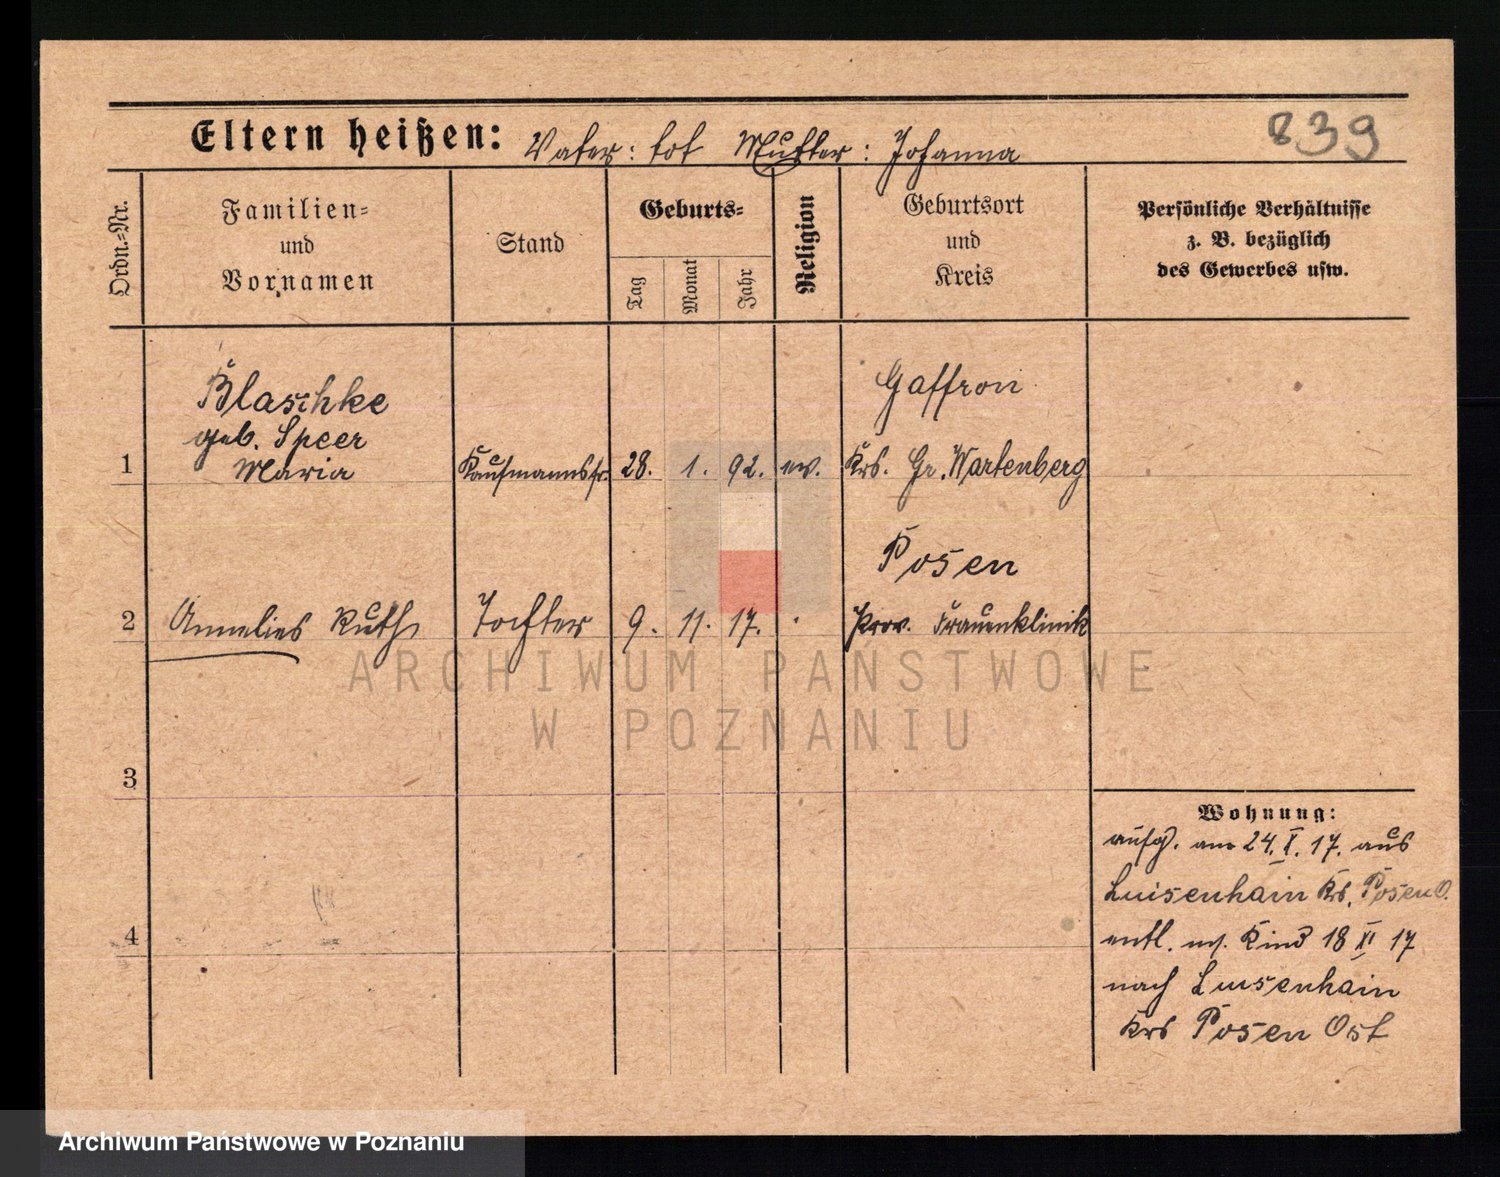 839
Eltern heißen: Vater: tot Mutter: Johanna
Ordn.-Nr.
Familien-
und
Vornamen
Stand
Geburts-
Tag
Monat
Jahr
Religion
Geburtsort
und
Kreis
Persönliche Verhältnisse
z. B. bezüglich
des Gewerbes usw.
Blaschke
geb. Speer
1 Maria Kaufmannsfr. 28. 1. 92. ev.
Gaffron
Krs. Gr. Wartenberg
Posen
2 Annelies Ruth Tochter 9. 11. 17. Prov. Frauenklinik
3
4
Wohnung:
aufg. am 24. X. 17. aus
Luisenhain Krs. Posen O.
entl. m. Kind 18 XI 17
nach Luisenhain
Krs Posen Ost
ARCHIWUM PAŃSTWOWE
W POZNANIU
Archiwum Państwowe w Poznaniu